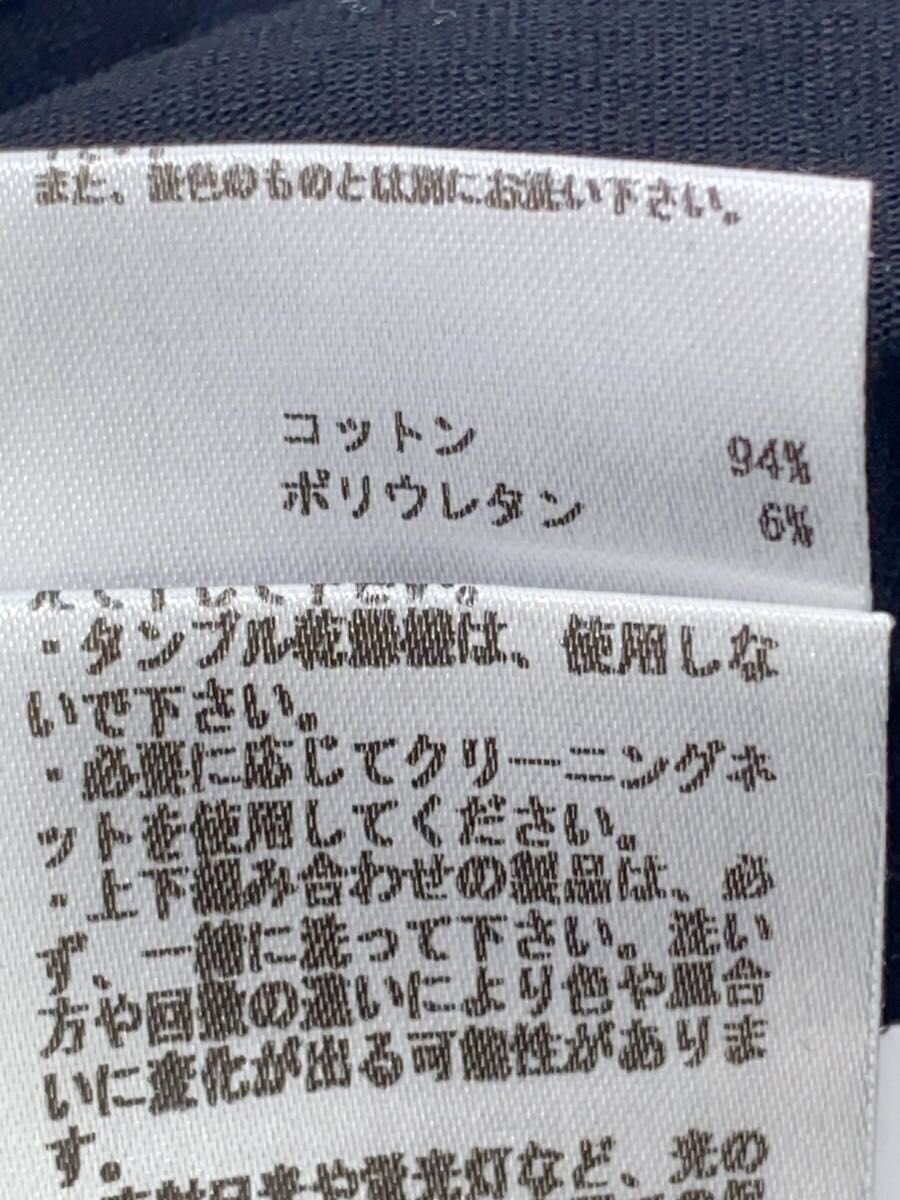 また、淡色のものとは別にお洗い下さい。
コットン 94%
ポリウレタン 6%
・タンブル乾燥機は、使用しな
いで下さい。
・必要に応じてクリーニングネ
ットを使用してください。
・上下組み合わせの製品は、必
ず、一緒に洗って下さい。洗い
方や回数の違いにより色や風合
いに変化が出る可能性がありま
す。
光や蛍光灯など、光の